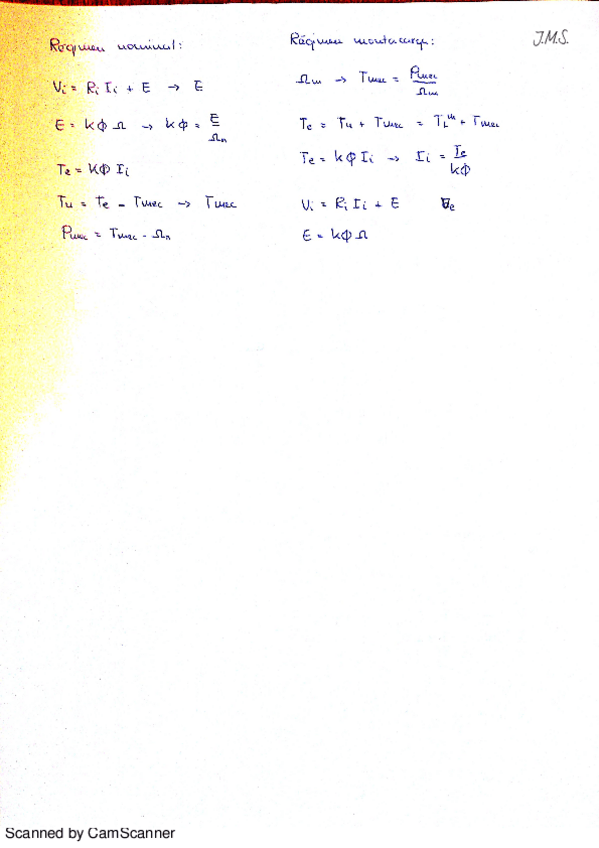 Régimen nominal:
Vi = Ri Ii + E → E
E = kϕ Ω → kϕ = E/Ωn
Te = kϕ Ii
Tu = Te - Tmec → Tmec
Pmec = Tmec - Ωn
Régimen montacarga:
Ωm → Tmec = Pmec/Ωm
Te = Tu + Tmec = TLm + Tmec
Te = kϕ Ii → Ii = Te/kϕ
Vi = Ri Ii + E
E = kϕ Ω
J.M.S.
Scanned by CamScanner